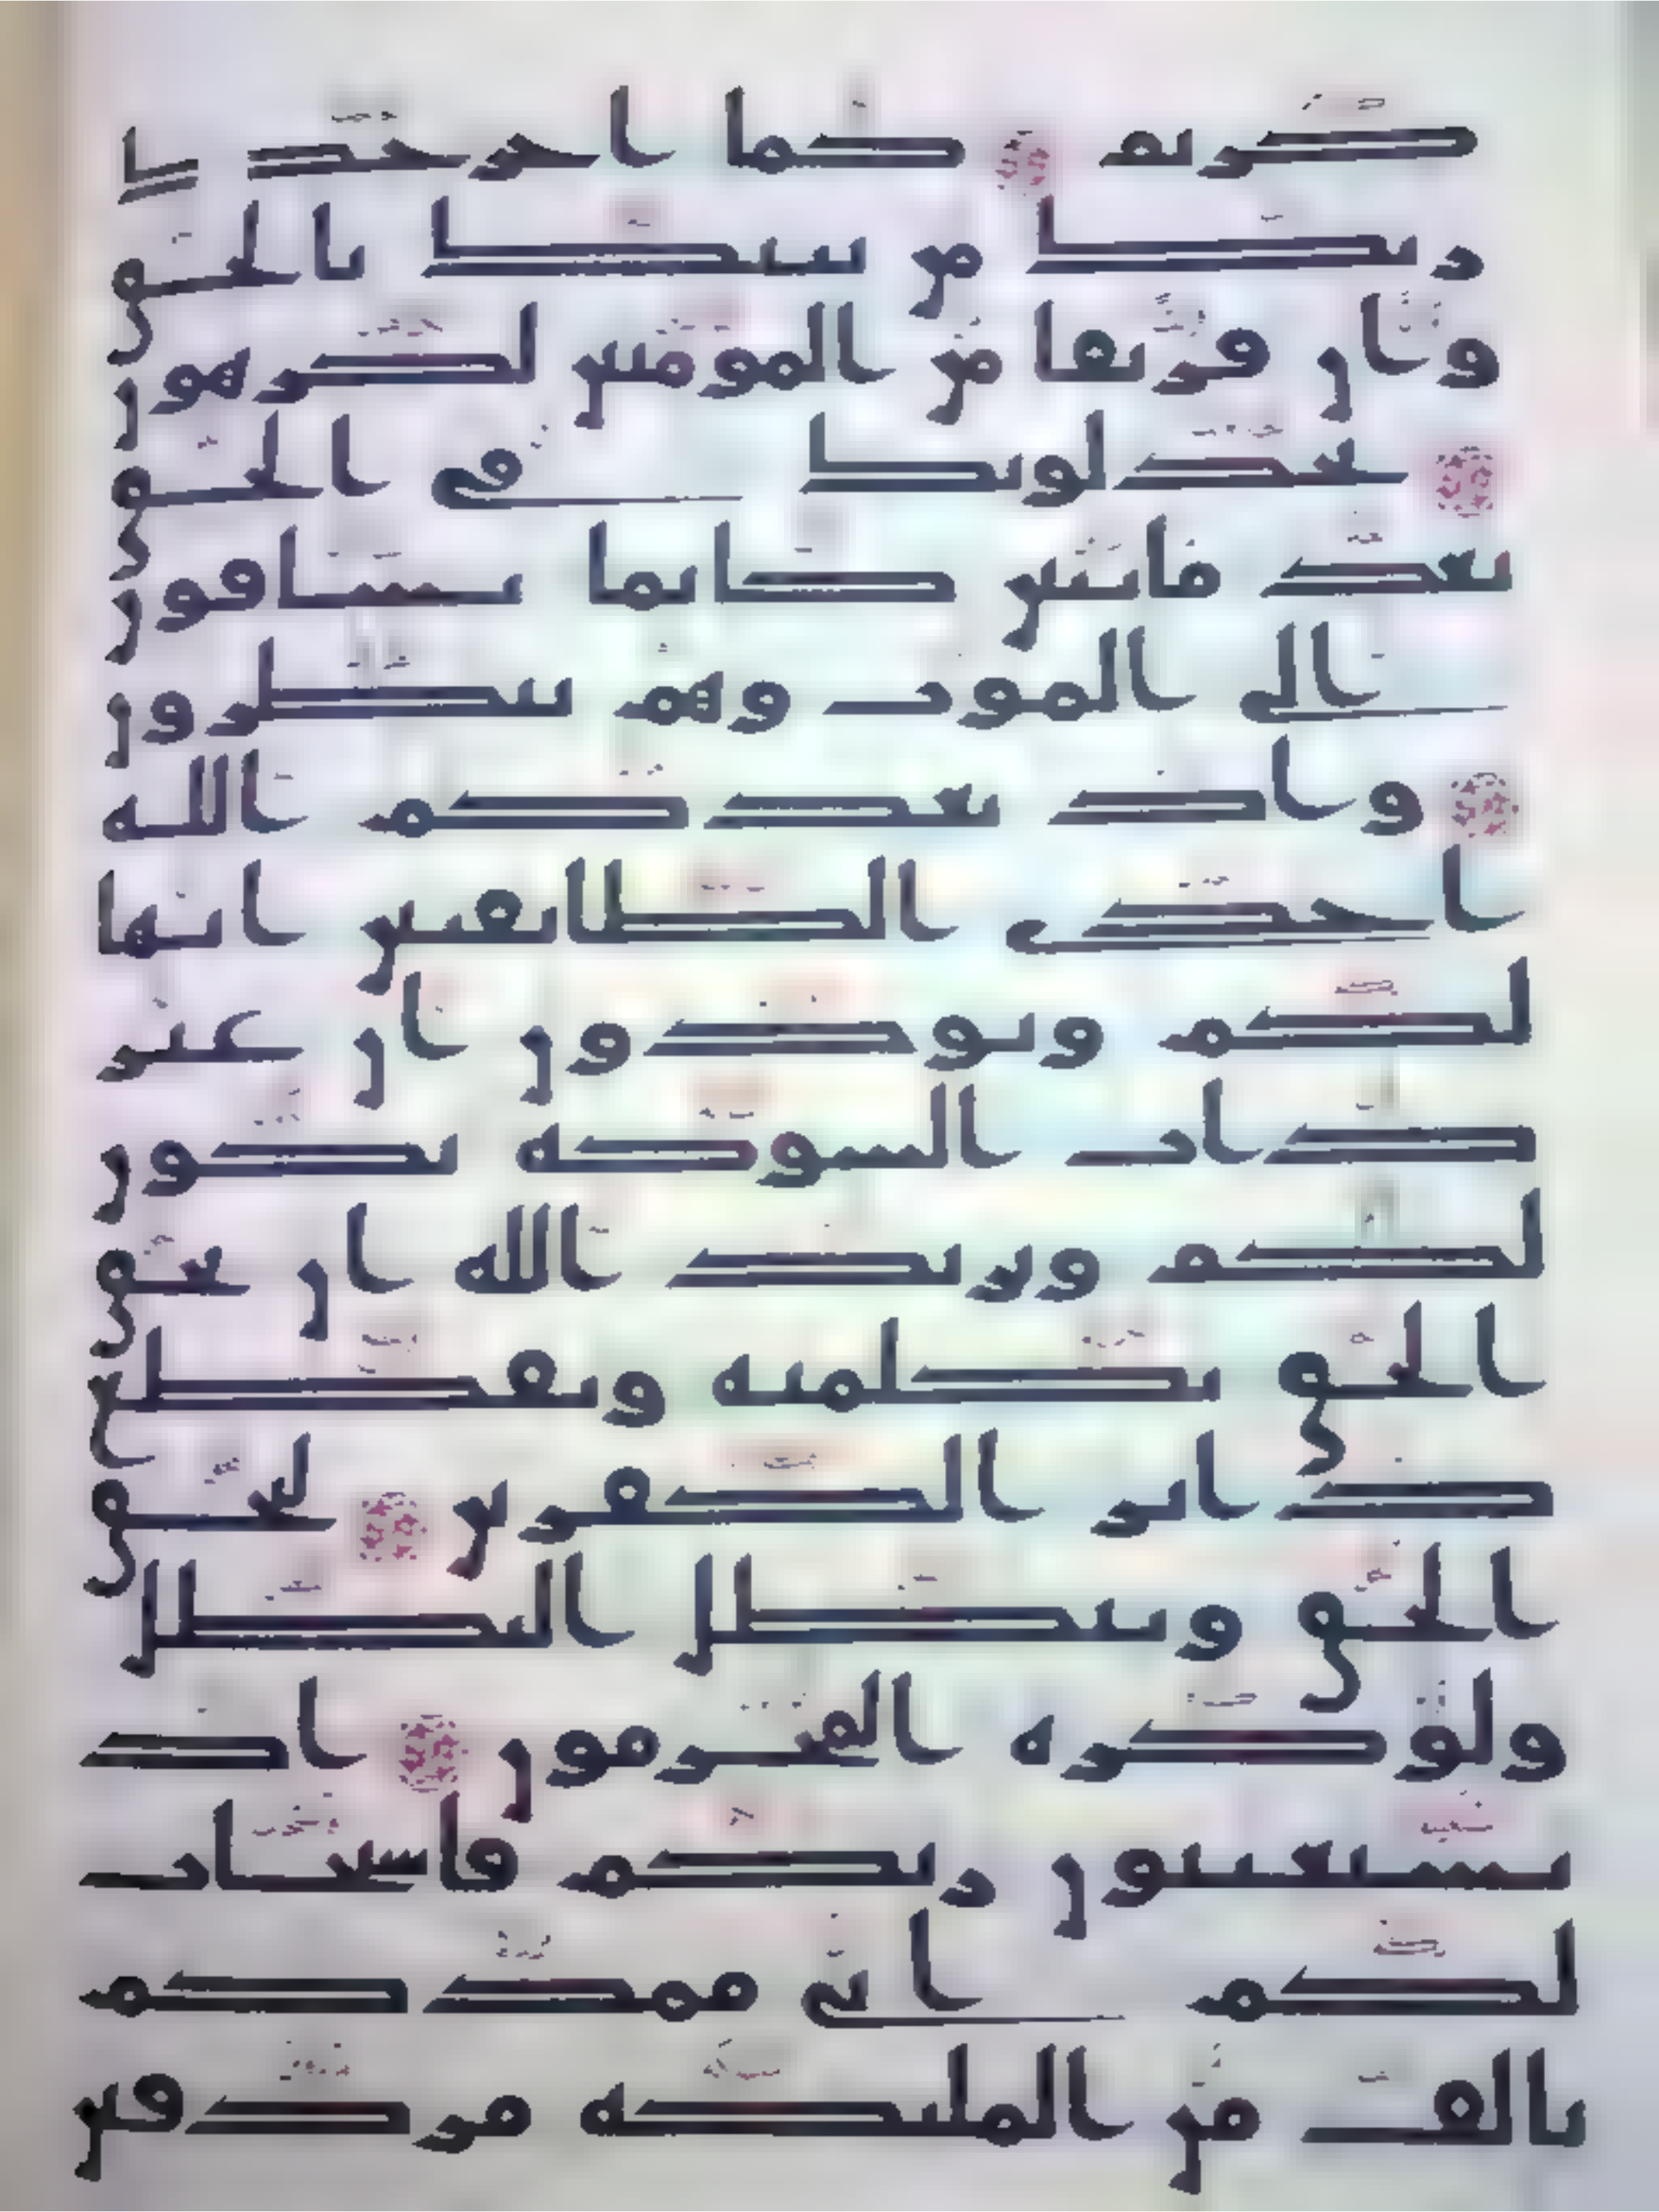 كريم كما اخرجك
ربك من بيتك بالحق
وان فريقا من المومنين لكرهون
يجدلونك في الحق
بعد ما تبين كانما يساقون
الى الموت وهم ينظرون
واذ يعدكم الله
احدى الطايفتين انها
لكم وتودون ان غير
ذات الشوكة تكون
لكم ويريد الله ان يحق
الحق بكلمته ويقطع
دابر الكفرين ليحق
الحق ويبطل البطل
ولو كره المجرمون اذ
تستغيثون ربكم فاستجاب
لكم اني ممدكم
بالف من الملىكة مردفين